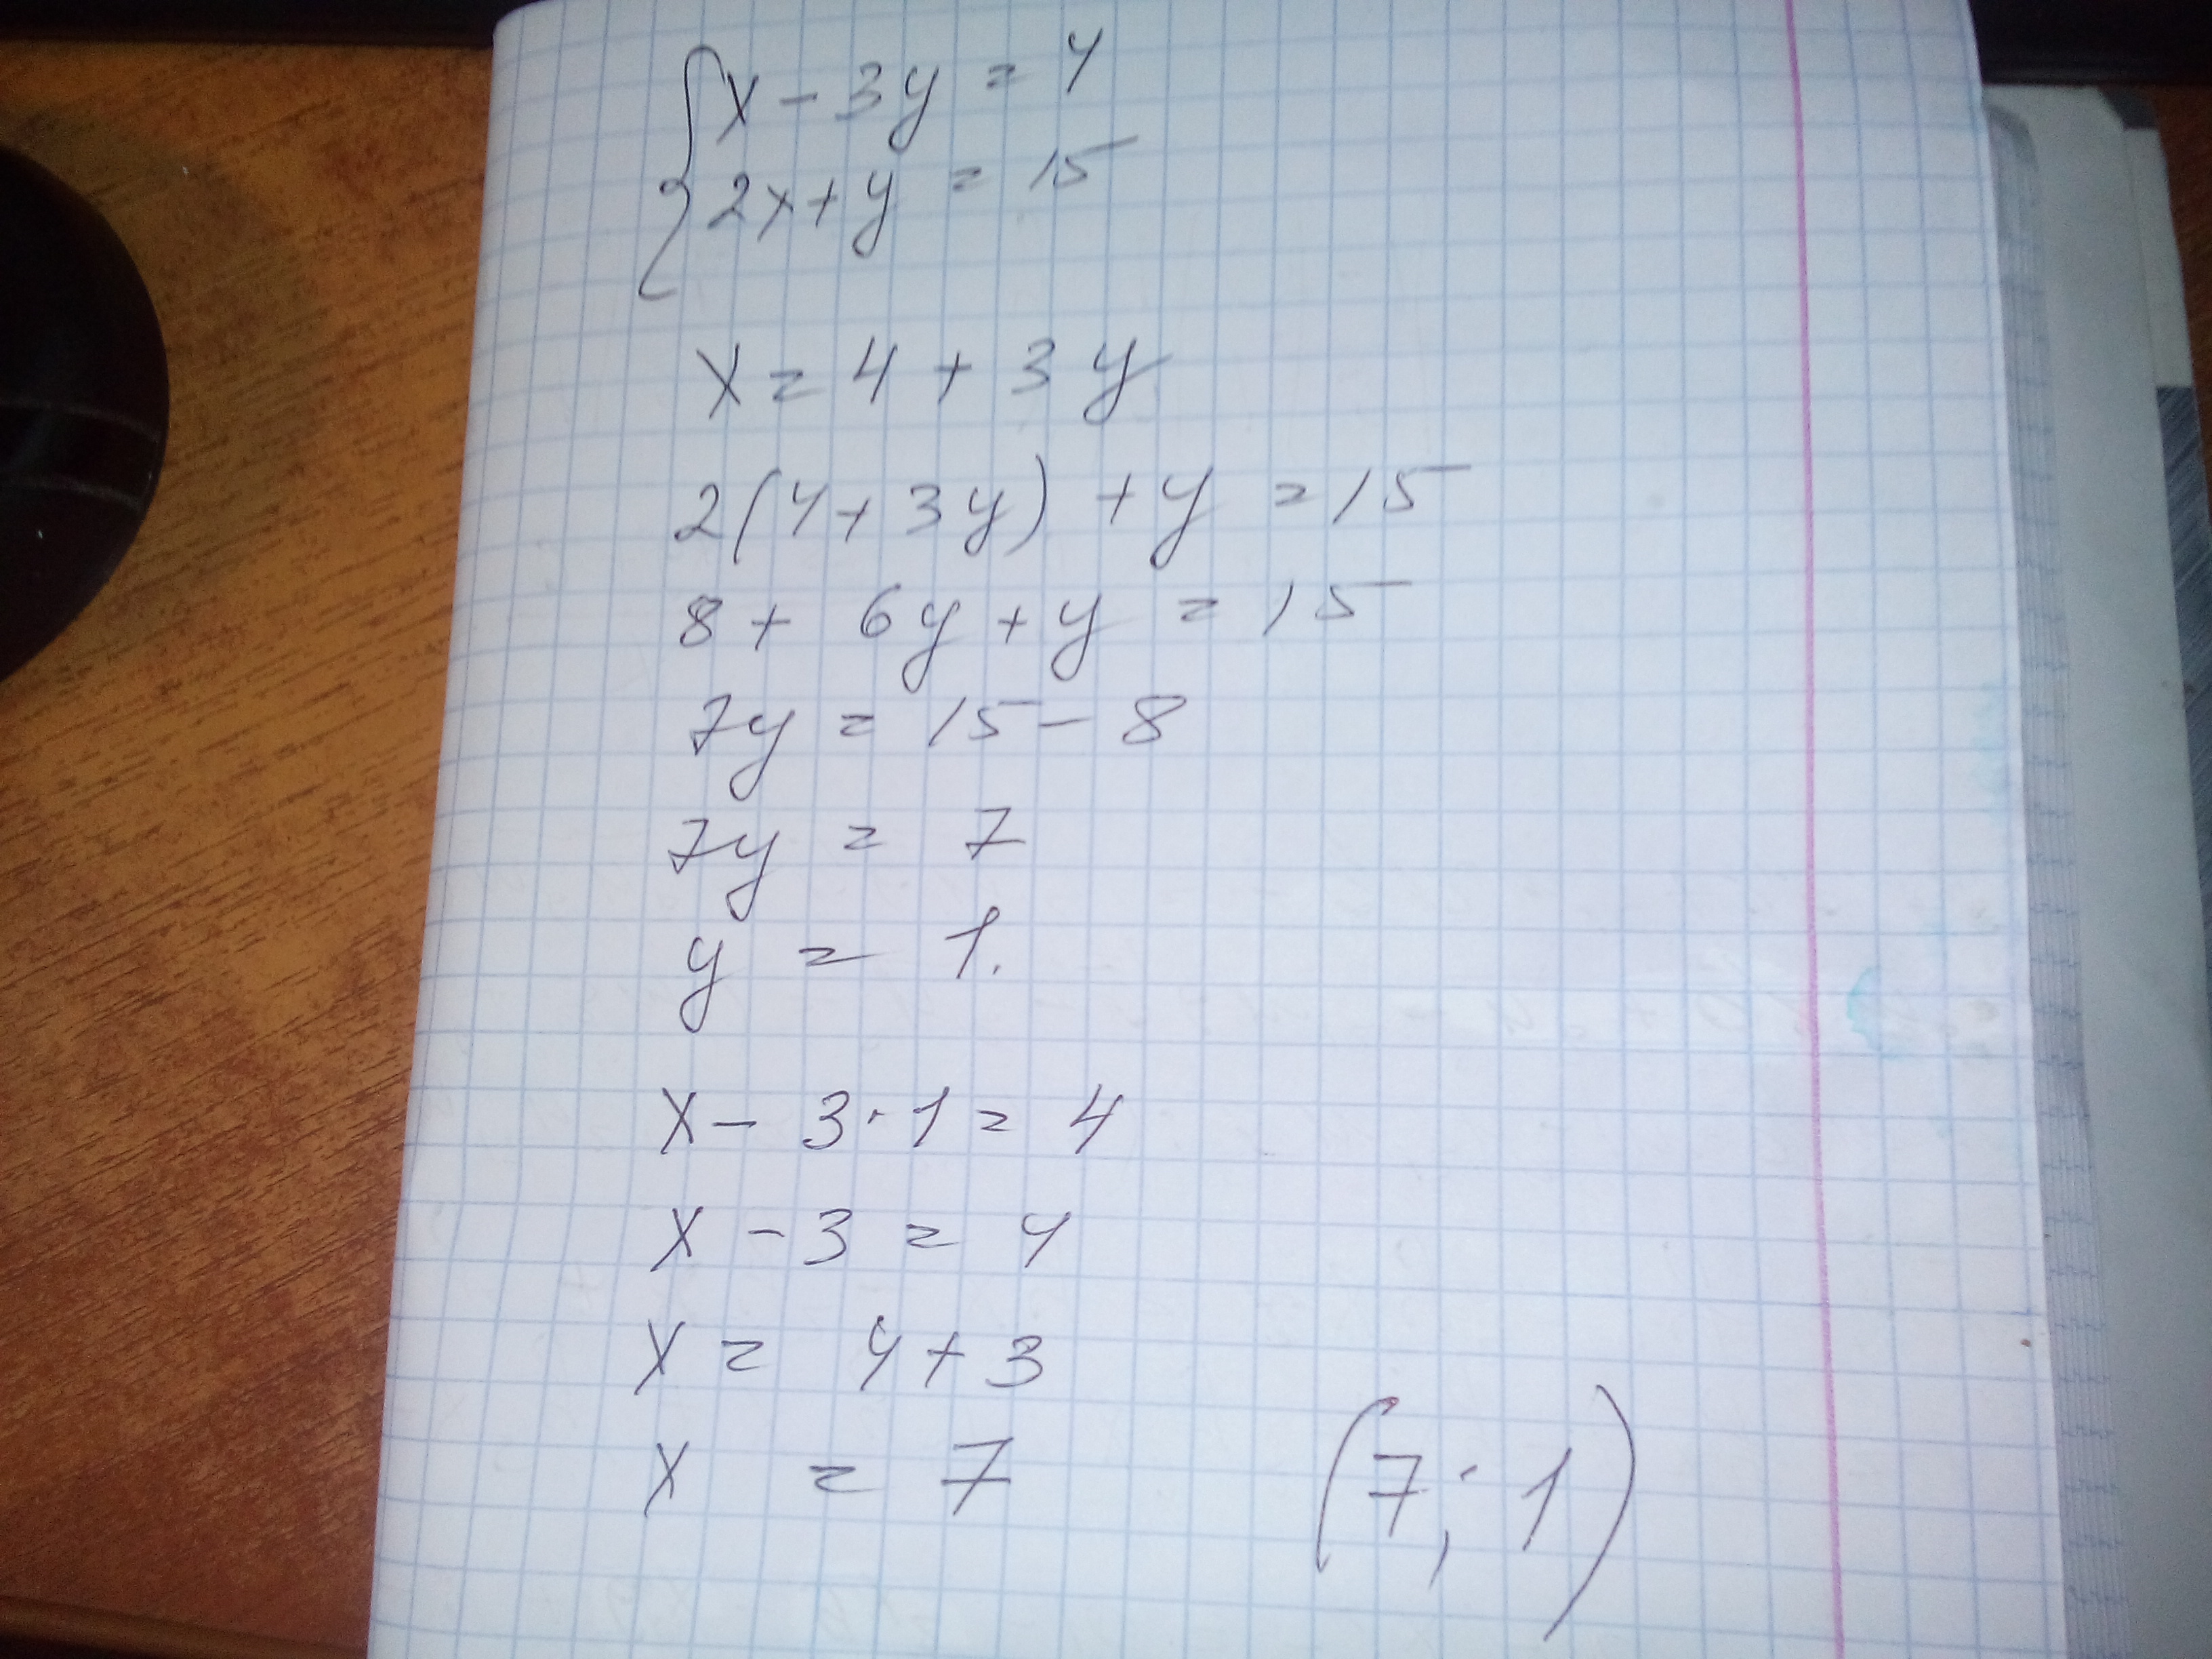 {x - 3y = 4
2x + y = 15
x = 4 + 3y
2(4 + 3y) + y = 15
8 + 6y + y = 15
7y = 15 - 8
7y = 7
y = 1.
x - 3 · 1 = 4
x - 3 = 4
x = 4 + 3
x = 7 (7; 1)